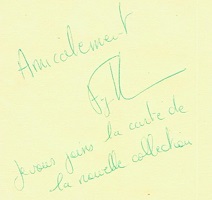 Amicalement
je vous joins la carte de
la nouvelle collection